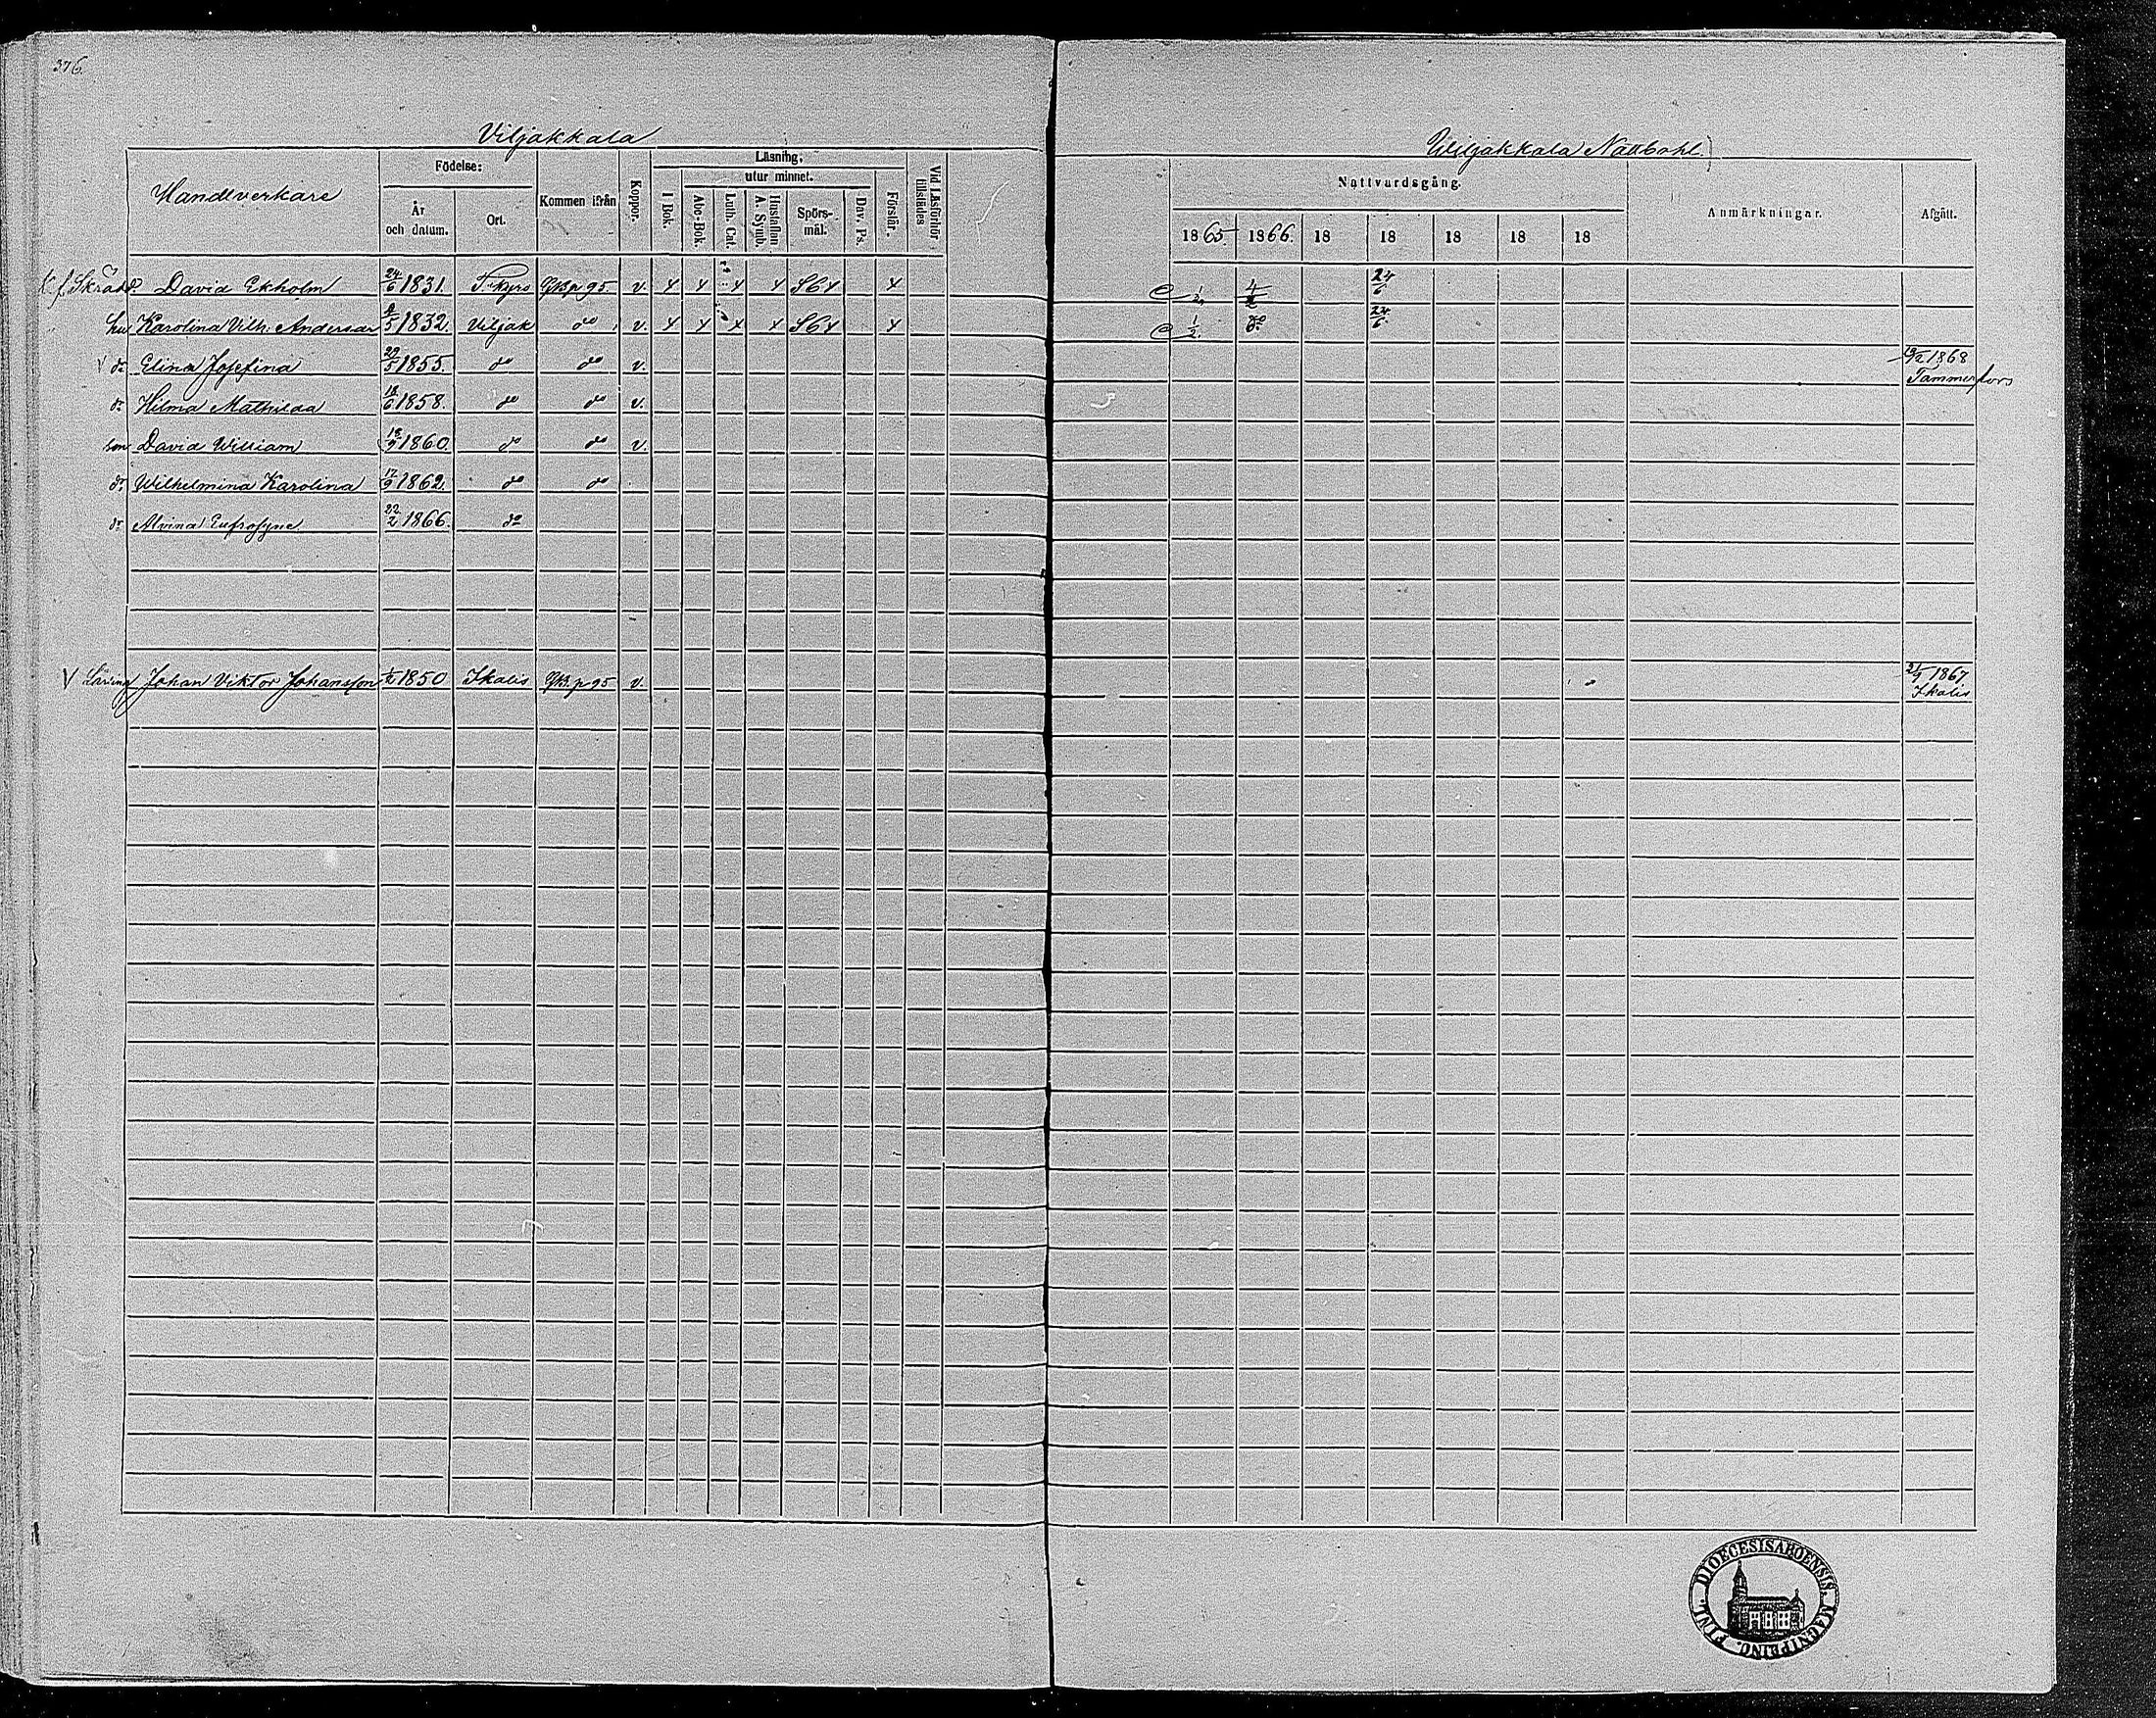 376.
Viljakkala
Handtverkare
Födelse:
År och datum.
Ort.
Kommen ifrån
Koppor.
Läsning,
utur minnet.
I Bok.
Abc-Bok.
Luth. Cat.
Hustaflan A. Symb.
Spörs-mål.
Dav. Ps.
Förstår.
Vid Läsförhör tillstädes
David Ekholm 24/6 1831. T.kyro p 95. v. x x x x x
hu Karolina Vilh: Andersdr 1832. Viljak do v. x x x x x
dr Elina Josefina 29/5 1855. do do v.
dr Hilma Mathilda 18/6 1858. do do v.
son David William 18/9 1860. do do v.
dr Wilhelmina Karolina 17/9 1862. do do
dr Alvina Eufrosyne 22/2 1866. do
V Johan Viktor Johansson 1850 Ikalis p 95 v.
Wiljakkala Nallbohl.
Nattvardsgång.
Anmärkningar.
Afgått.
1865. 1866. 18 18 18 18 18
24/6
1/2. do 24/6
1868
Tammerfors
21/9 1867
Ikalis
DIOECESIS ABOENSIS. MAGNI PRINC. FINL.